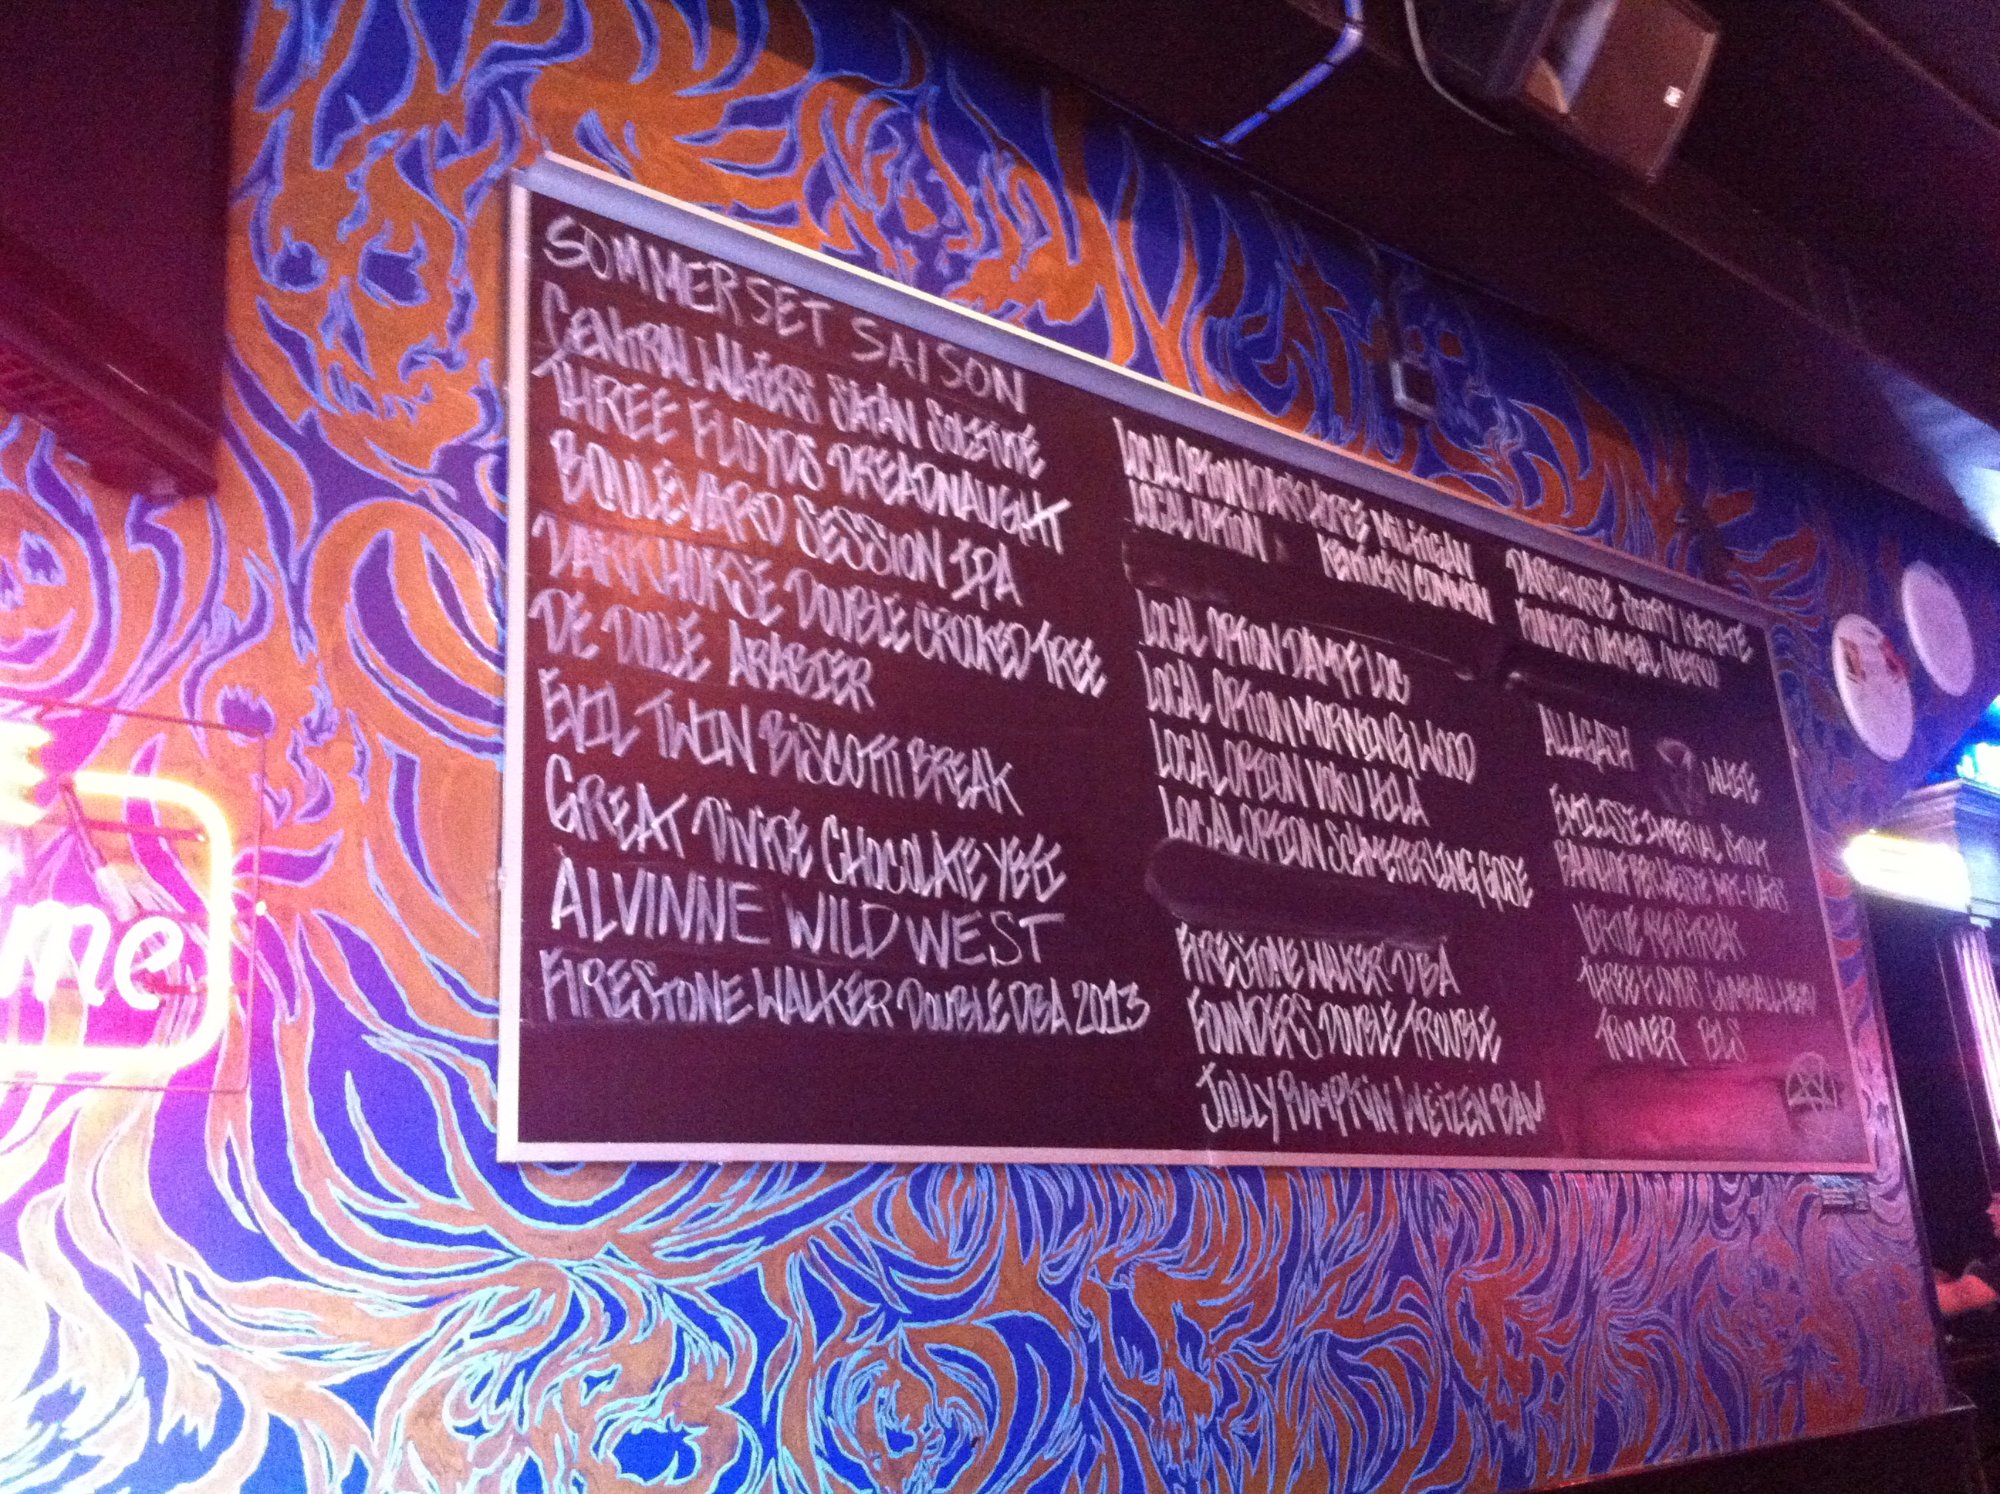 SOMMERSET SAISON
CENTRAL WATERS SATAN SOLSTICE
THREE FLOYDS DREADNAUGHT
BOULEVARD SESSION IPA
DARKHORSE DOUBLE CROOKED TREE
DE DOLLE ARABIER
EVIL TWIN BISCOTTI BREAK
GREAT DIVIDE CHOCOLATE YETI
ALVINNE WILD WEST
FIRESTONE WALKER DOUBLE DBA 2013
LOCAL OPTION
KENTUCKY COMMON
LOCAL OPTION DAMPF LOC
LOCAL OPTION MORNING WOOD
LOCAL OPTION VOKU HILA
LOCAL OPTION SCHMETTERLING GOSE
FIRESTONE WALKER DBA
FOUNDERS DOUBLE TROUBLE
JOLLY PUMPKIN WEIZEN BAM
DARKHORSE
ALLAGASH WHITE
IMPERIAL STOUT
THREE FLOYDS GUMBALLHEAD
TRUMER PILS
me